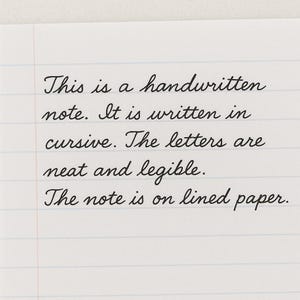 This is a handwritten
note. It is written in
cursive. The letters are
neat and legible.
The note is on lined paper.